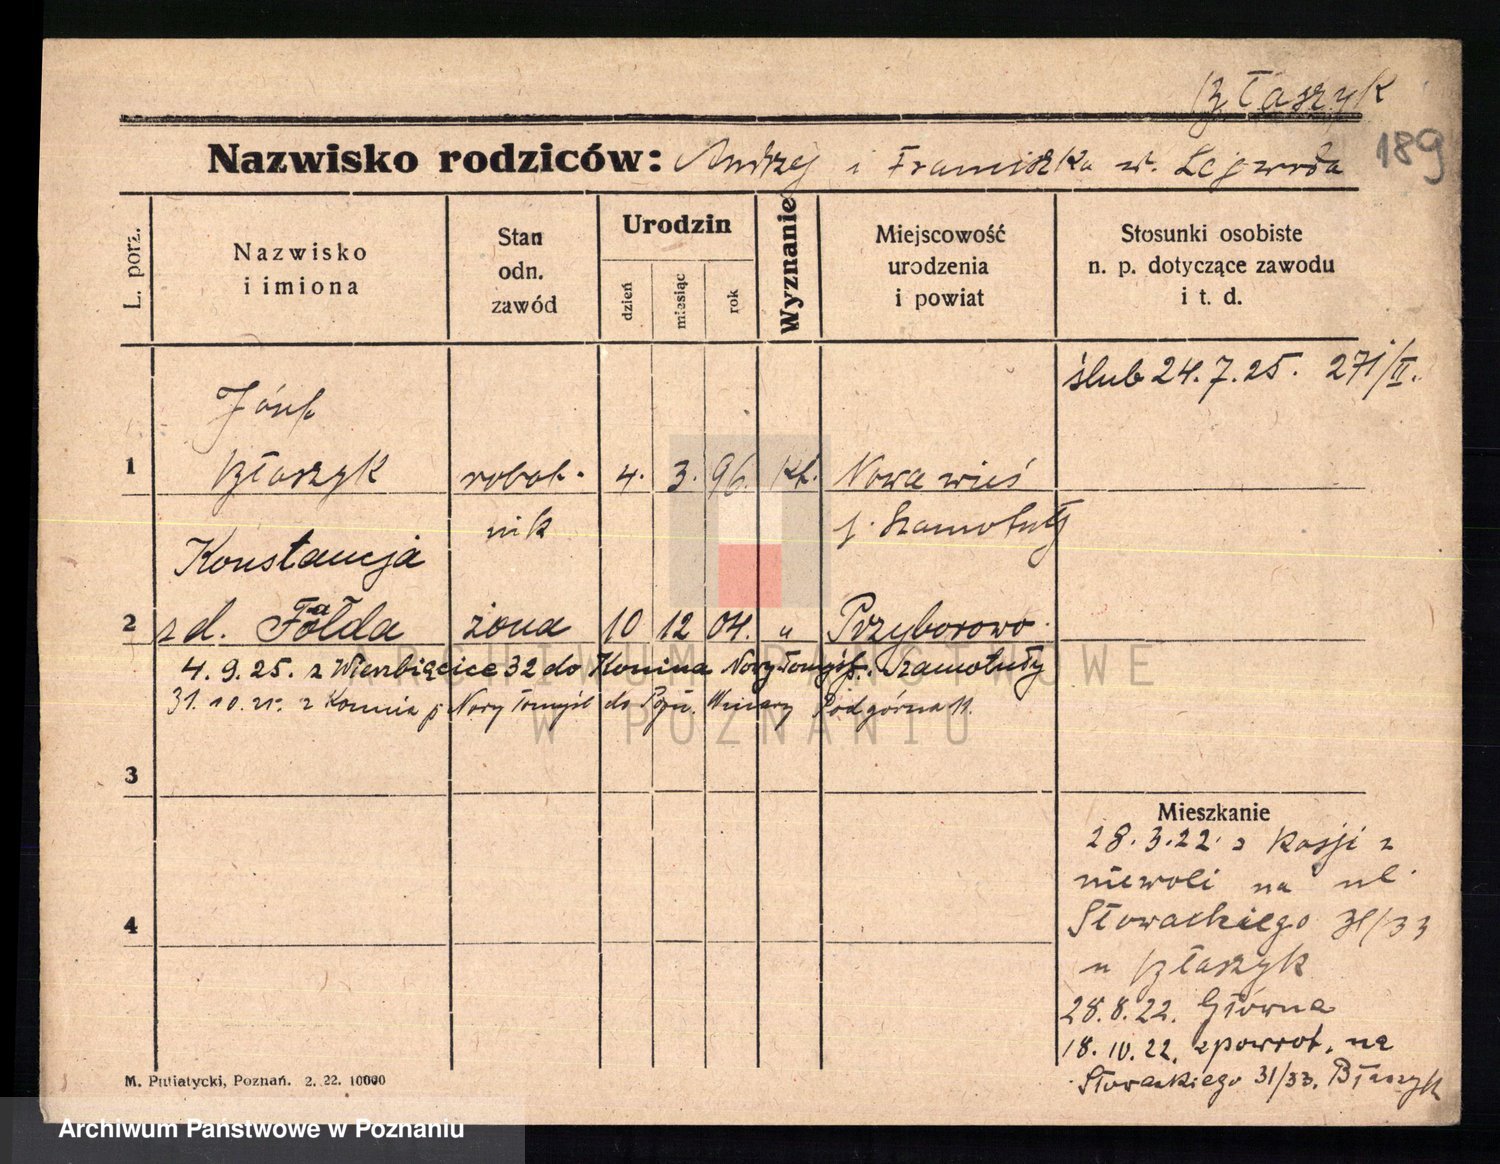 Błaszyk
189
Nazwisko rodziców: Andrzej i Franciszka z d. Lejawda
L. porz.
Nazwisko
i imiona
Stan
odn.
zawód
Urodzin
dzień
miesiąc
rok
Wyznanie
Miejscowość
urodzenia
i powiat
Stosunki osobiste
n. p. dotyczące zawodu
i t. d.
ślub 24.7.25. 271/II.
Józef
1 Błaszyk robot- 4. 3. 96. kt. Nowa wieś
nik p. Szamotuły
Konstancja
2 z d. Fałda żona 10 12 04. " Przyborowo
4.9.25. z Wierzbięcice 32 do Konina Nowy Tomyśl p. Szamotuły
31.10.25. z Konina p Nowy Tomyśl do Pozn. Winiary Podgórna 11.
3
Mieszkanie
28.3.22. z Rosji z
niewoli na ul.
4 Słowackiego 31/33
u Błaszyk
28.8.22. Główna
18.10.22. zpowrot. na
Słowackiego 31/33. Błaszyk
M. Putiatycki, Poznań. 2. 22. 10000
ARCHIWUM PAŃSTWOWE
W POZNANIU
Archiwum Państwowe w Poznaniu